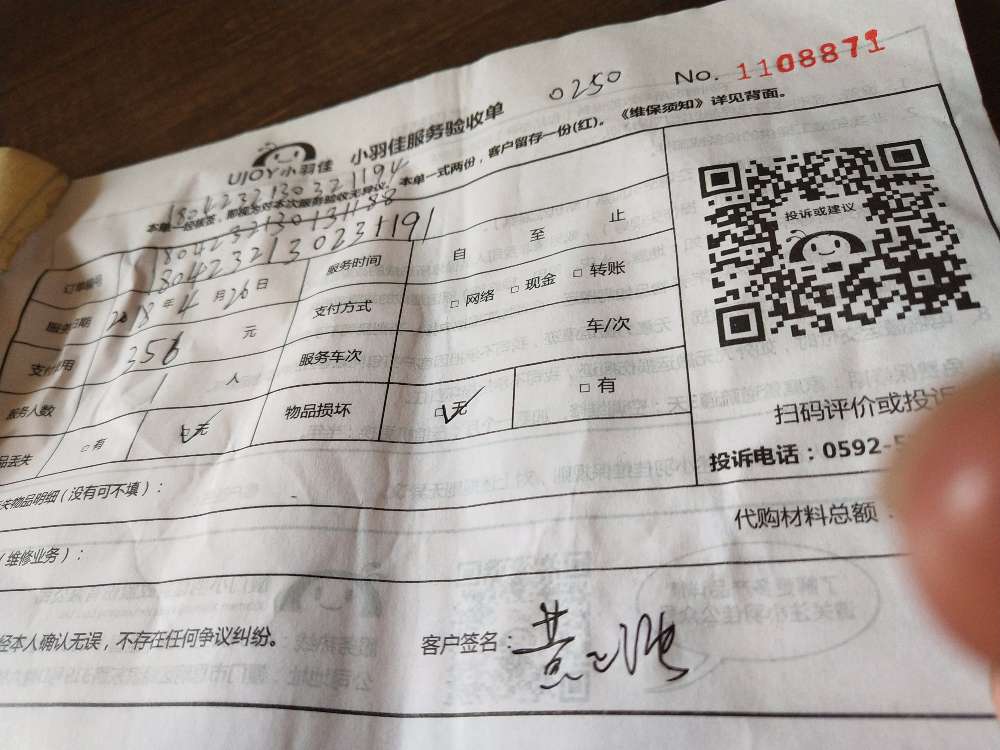 0250 No. 1108871
UJOY小羽佳 小羽佳服务验收单
本单一经核签，即视为对本次服务验收无异议。本单一式两份，客户留存一份(红)。《维保须知》详见背面。
1804232130321194
1804232130131188
订单编号 1804232130231191 服务时间 自 至 止
服务日期 2018年4月26日 支付方式 □网络 □现金 □转账
支付费用 356 元 服务车次 车/次
服务人数 1 人 物品损坏 □无 □有
品丢失 □有 □无
投诉或建议
扫码评价或投诉
投诉电话：0592-5
关物品明细（没有可不填）：
代购材料总额：
（维修业务）：
经本人确认无误，不存在任何争议纠纷。 客户签名：